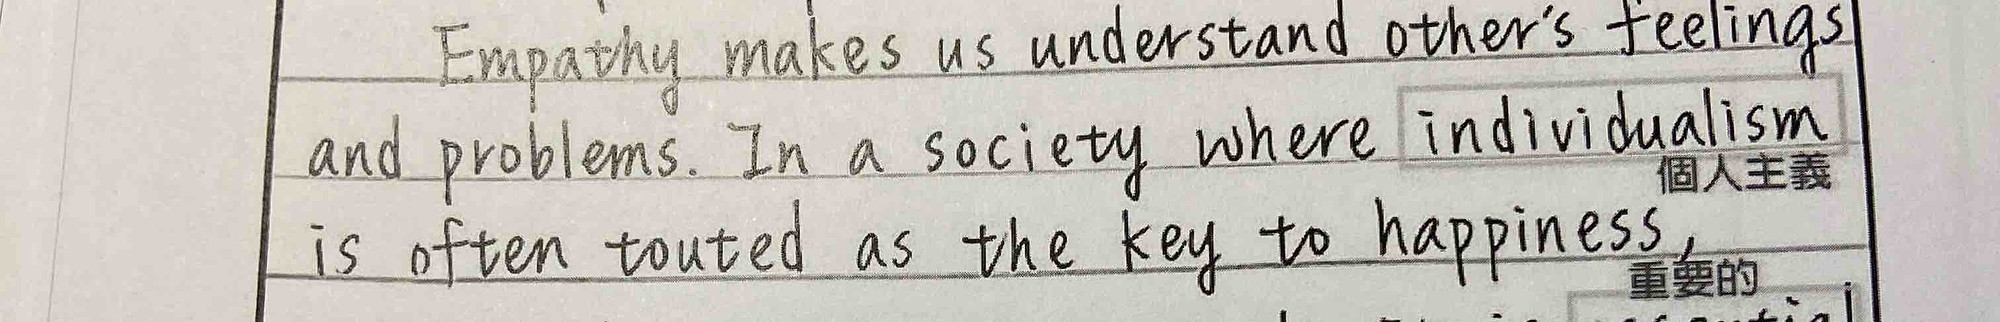 Empathy makes us understand other's feelings
and problems. In a society where individualism
個人主義
is often touted as the key to happiness,
重要的